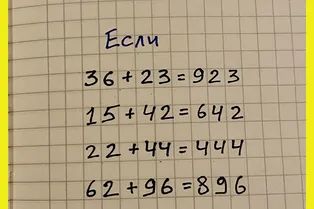 Если
36+23=923
15+42=642
22+44=444
62+96=896